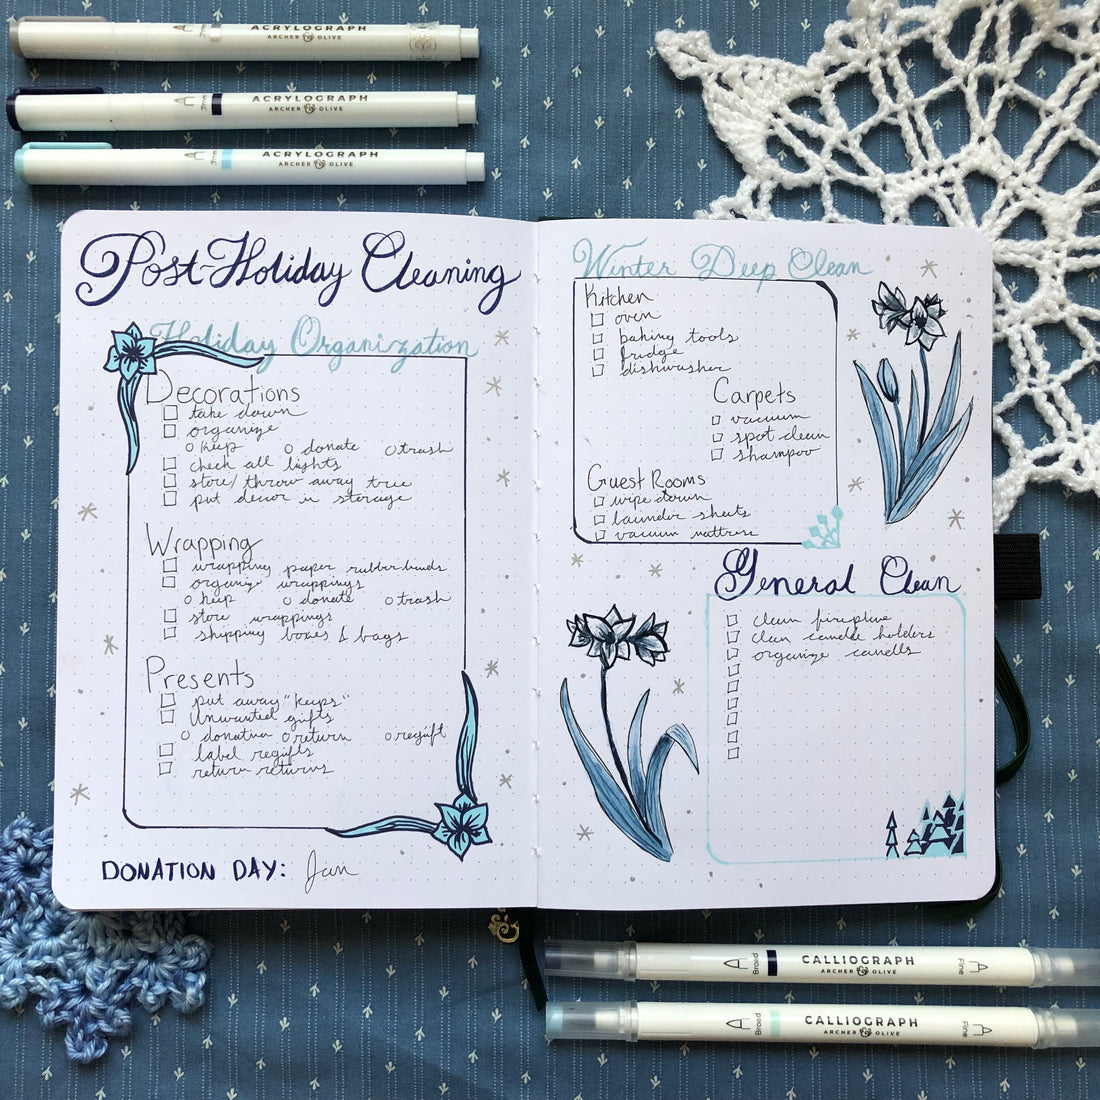 ACRYLOGRAPH
ARCHER OLIVE
ACRYLOGRAPH
ARCHER OLIVE
ACRYLOGRAPH
ARCHER OLIVE
Post-Holiday Cleaning
Holiday Organization
Decorations
take down
organize
keep donate trash
check all lights
store/throw away tree
put decor in storage
Wrapping
wrapping paper rubberbands
organize wrappings
keep donate trash
store wrappings
shipping boxes & bags
Presents
put away "keeps"
Unwanted gifts
donation return regift
label regifts
return returns
DONATION DAY: Jan
Winter Deep Clean
Kitchen
oven
baking tools
fridge
dishwasher
Carpets
vacuum
spot clean
shampoo
Guest Rooms
wipe down
launder sheets
vacuum mattress
General Clean
clean fireplace
clean candle holders
organize candles
Broad CALLIOGRAPH Fine
ARCHER OLIVE
Broad CALLIOGRAPH Fine
ARCHER OLIVE